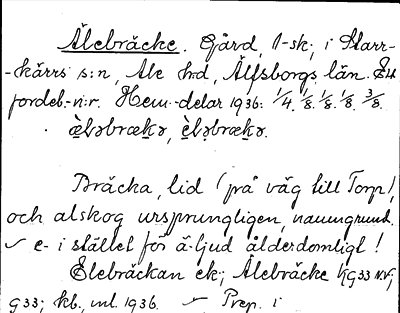 Älebräcke. Gård, 1-sk; i Starr-
-kärrs s:n, Ale h:d, Älfsborgs län. Ett
jordeb.-n:r. Hem.-delar 1936: 1/4. 1/8. 1/8. 1/8. 3/8.
Bräcka, lid (på väg till Torp),
och alskog ursprungligen, naumgrund.
✓ e- i stället för ä-ljud ålderdomligt!
Elebräckan ek; Älebräcke
G33; kb., ml. 1936. ✓ Prep. i